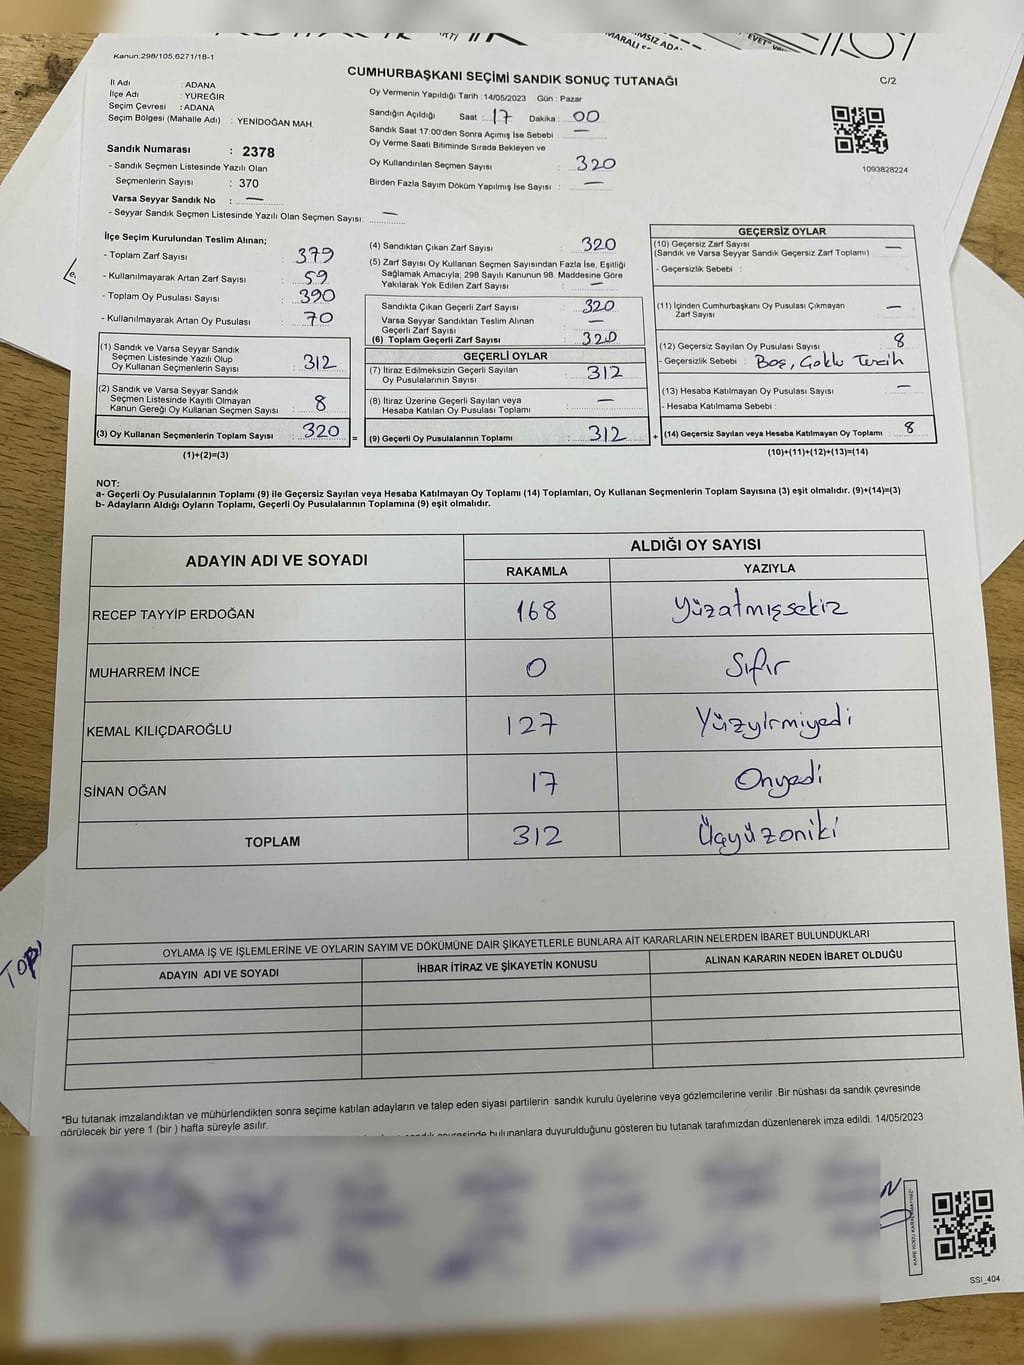 Kanun:298/105,6271/18-1
CUMHURBAŞKANI SEÇİMİ SANDIK SONUÇ TUTANAĞI
C/2
İl Adı : ADANA
İlçe Adı : YÜREĞİR
Seçim Çevresi : ADANA
Seçim Bölgesi (Mahalle Adı) : YENİDOĞAN MAH.
Sandık Numarası : 2378
- Sandık Seçmen Listesinde Yazılı Olan
Seçmenlerin Sayısı : 370
Varsa Seyyar Sandık No : —
- Seyyar Sandık Seçmen Listesinde Yazılı Olan Seçmen Sayısı: —
Oy Vermenin Yapıldığı Tarih : 14/05/2023 Gün : Pazar
Sandığın Açıldığı Saat : 17 Dakika : 00
Sandık Saat 17:00'den Sonra Açımış İse Sebebi : —
Oy Verme Saati Bitiminde Sırada Bekleyen ve
Oy Kullandırılan Seçmen Sayısı : 320
Birden Fazla Sayım Döküm Yapılmış İse Sayısı : —
1093828224
İlçe Seçim Kurulundan Teslim Alınan;
- Toplam Zarf Sayısı : 379
- Kullanılmayarak Artan Zarf Sayısı : 59
- Toplam Oy Pusulası Sayısı : 390
- Kullanılmayarak Artan Oy Pusulası : 70
(1) Sandık ve Varsa Seyyar Sandık
Seçmen Listesinde Yazılı Olup
Oy Kullanan Seçmenlerin Sayısı : 312
(2) Sandık ve Varsa Seyyar Sandık
Seçmen Listesinde Kayıtlı Olmayan
Kanun Gereği Oy Kullanan Seçmen Sayısı : 8
(3) Oy Kullanan Seçmenlerin Toplam Sayısı : 320 =
(1)+(2)=(3)
(4) Sandıktan Çıkan Zarf Sayısı : 320
(5) Zarf Sayısı Oy Kullanan Seçmen Sayısından Fazla İse, Eşitliği
Sağlamak Amacıyla; 298 Sayılı Kanunun 98. Maddesine Göre
Yakılarak Yok Edilen Zarf Sayısı : —
Sandıkta Çıkan Geçerli Zarf Sayısı : 320
Varsa Seyyar Sandıktan Teslim Alınan
Geçerli Zarf Sayısı : —
(6) Toplam Geçerli Zarf Sayısı : 320
GEÇERLİ OYLAR
(7) İtiraz Edilmeksizin Geçerli Sayılan
Oy Pusulalarının Sayısı : 312
(8) İtiraz Üzerine Geçerli Sayılan veya
Hesaba Katılan Oy Pusulası Toplamı : —
(9) Geçerli Oy Pusulalarının Toplamı : 312 +
GEÇERSİZ OYLAR
(10) Geçersiz Zarf Sayısı : —
(Sandık ve Varsa Seyyar Sandık Geçersiz Zarf Toplamı)
- Geçersizlik Sebebi :
(11) İçinden Cumhurbaşkanı Oy Pusulası Çıkmayan
Zarf Sayısı : —
(12) Geçersiz Sayılan Oy Pusulası Sayısı : 8
- Geçersizlik Sebebi : Boş, Çoklu Tercih
(13) Hesaba Katılmayan Oy Pusulası Sayısı : —
- Hesaba Katılmama Sebebi :
(14) Geçersiz Sayılan veya Hesaba Katılmayan Oy Toplamı : 8
(10)+(11)+(12)+(13)=(14)
NOT:
a- Geçerli Oy Pusulalarının Toplamı (9) ile Geçersiz Sayılan veya Hesaba Katılmayan Oy Toplamı (14) Toplamları, Oy Kullanan Seçmenlerin Toplam Sayısına (3) eşit olmalıdır. (9)+(14)=(3)
b- Adayların Aldığı Oyların Toplamı, Geçerli Oy Pusulalarının Toplamına (9) eşit olmalıdır.
ADAYIN ADI VE SOYADI
ALDIĞI OY SAYISI
RAKAMLA YAZIYLA
RECEP TAYYİP ERDOĞAN 168 Yüzatmışsekiz
MUHARREM İNCE 0 Sıfır
KEMAL KILIÇDAROĞLU 127 Yüzyirmiyedi
SİNAN OĞAN 17 Onyedi
TOPLAM 312 Üçyüzoniki
TOP
OYLAMA İŞ VE İŞLEMLERİNE VE OYLARIN SAYIM VE DÖKÜMÜNE DAİR ŞİKAYETLERLE BUNLARA AİT KARARLARIN NELERDEN İBARET BULUNDUKLARI
ADAYIN ADI VE SOYADI İHBAR İTİRAZ VE ŞİKAYETİN KONUSU ALINAN KARARIN NEDEN İBARET OLDUĞU
*Bu tutanak imzalandıktan ve mühürlendikten sonra seçime katılan adayların ve talep eden siyasi partilerin sandık kurulu üyelerine veya gözlemcilerine verilir .Bir nüshası da sandık çevresinde
görülecek bir yere 1 (bir ) hafta süreyle asılır.
bulunanlara duyurulduğunu gösteren bu tutanak tarafımızdan düzenlenerek imza edildi. 14/05/2023
SSI_404